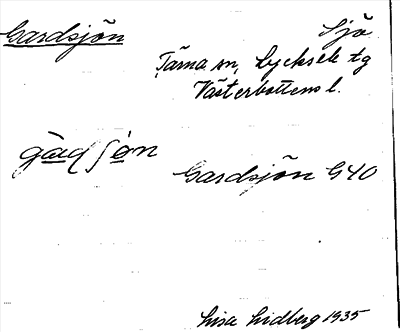 Gardsjön Sjö
Tärna sn, Lycksele tg
Västerbottens l.
Gardsjön G40
Lisa Lidberg 1935